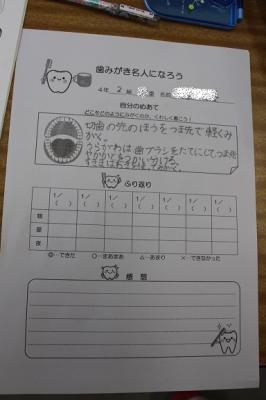 歯みがき名人になろう
4年 2 組 番 名前
自分のめあて
どこをどのようにみがくのか、くわしく書こう!
切歯の先のほうをつま先で軽くみ
がく。
うらがわは歯ブラシをたてにしてつま先
やかかとをつかい分ける。
ふり返り
1/ 1/ 1/ 1/ 1/ 1/ 1/
( ) ( ) ( ) ( ) ( ) ( ) ( )
朝
昼
夜
◎…できた ○…まあまあ △…あまり ×…できなかった
感想